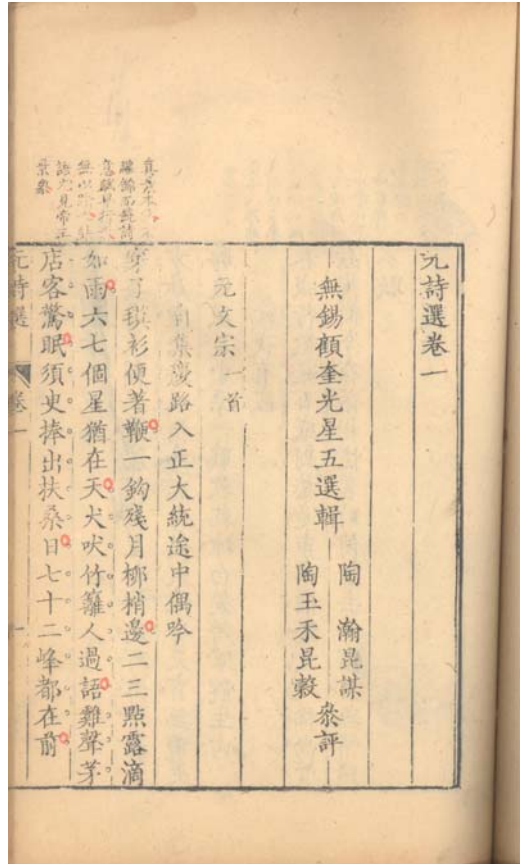 元詩選卷一
無錫顧奎光星五選輯
陶 瀚昆謀
陶玉禾昆穀
叅評
元文宗一首
自集慶路入正大統途中偶吟
穿了氁衫便著鞭一鈎殘月柳梢邊二三點露滴
如雨六七個星猶在天犬吠竹籬人過語雞聲茅
店客驚眠須臾捧出扶桑日七十二峰都在前
元詩選
卷一
一